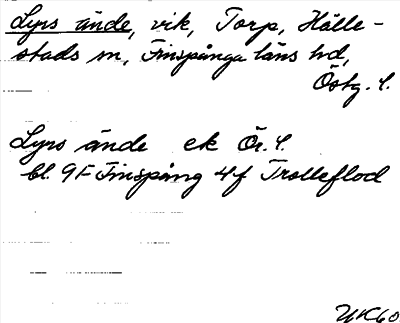 Lyrs ände, vik, Torp, Hälle-
stads sn, Finspånga läns hd,
Östg. l.
Lyrs ände ek Ör. l.
bl. 9F Finspång 4f Trolleflod
UK60